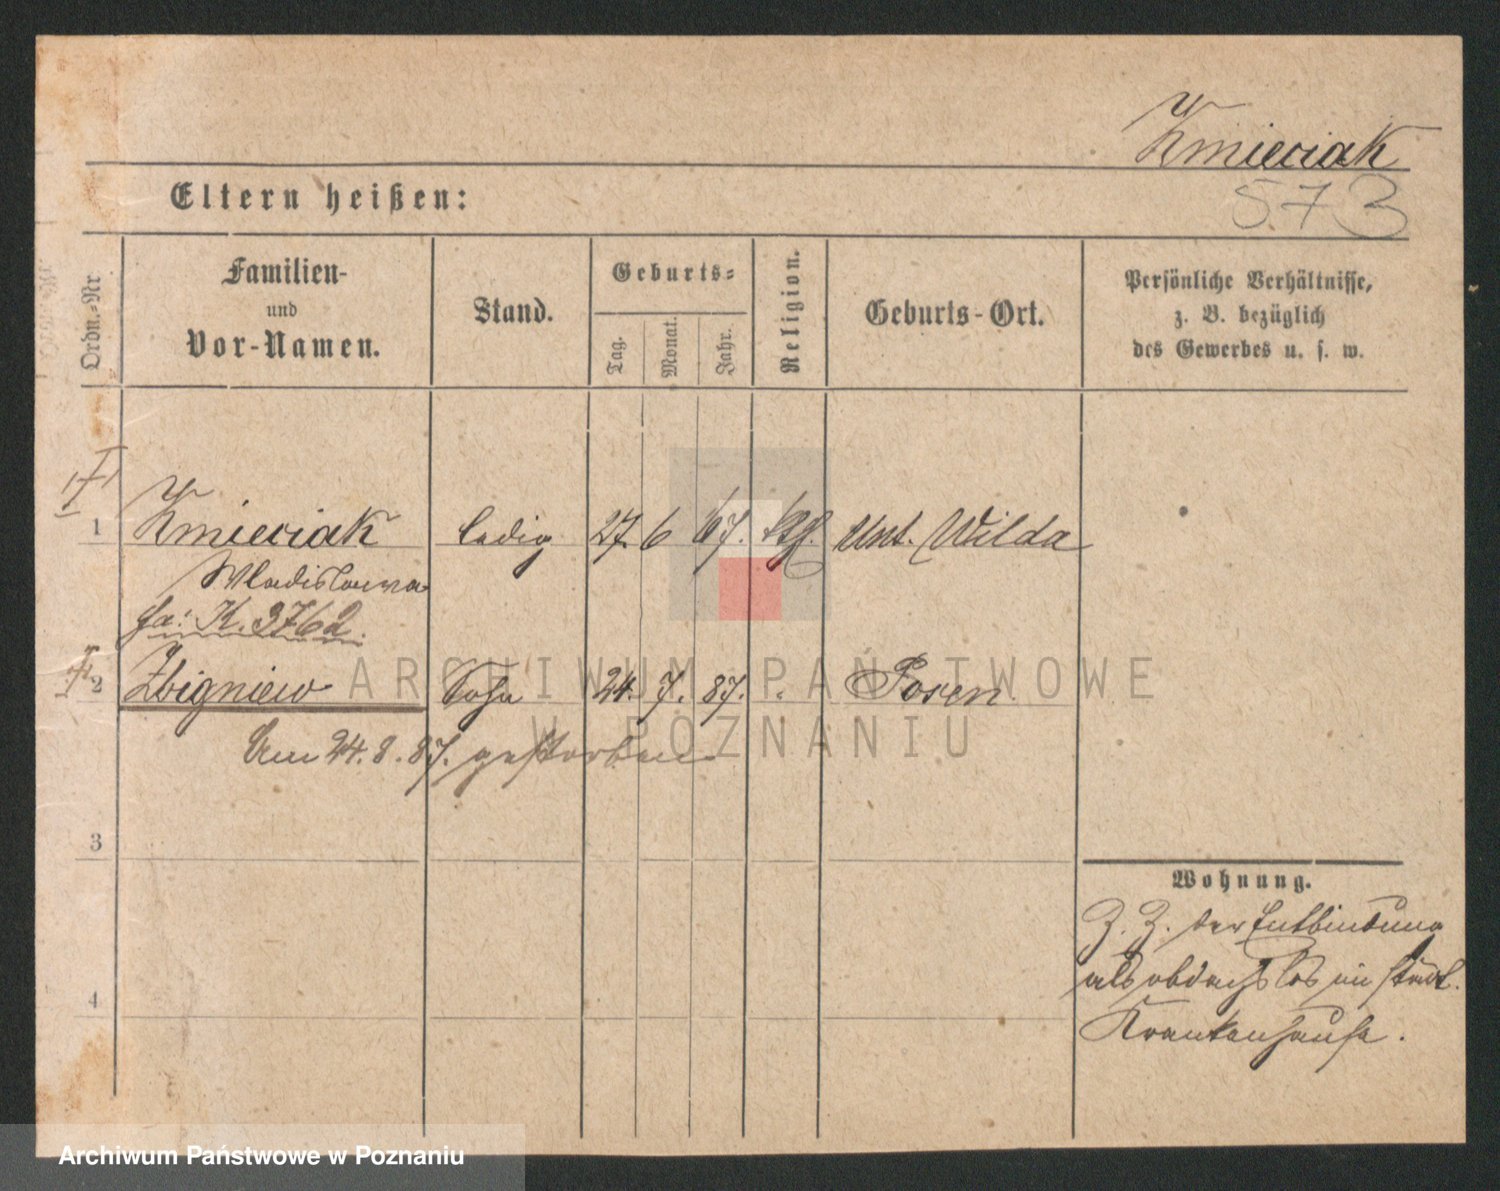 Kmieciak
573
Eltern heißen:
Ordn.-Nr
Familien-
und
Vor-Namen.
Stand.
Geburts-
Tag.
Monat.
Jahr.
Religion.
Geburts-Ort.
Persönliche Verhältnisse,
z. B. bezüglich
des Gewerbes u. s. w.
1 Kmieciak ledig 27. 6 67. kth. Unt. Wilda
Wladislawa
fa: K. 3762.
2 Zbigniew Sohn 24. 7. 87. Posen
Am 24.8.87. gestorben
3
4
Wohnung.
Z. Z. der Entbindung
als obdachslos im städt.
Krankenhause.
ARCHIWUM PAŃSTWOWE
W POZNANIU
Archiwum Państwowe w Poznaniu